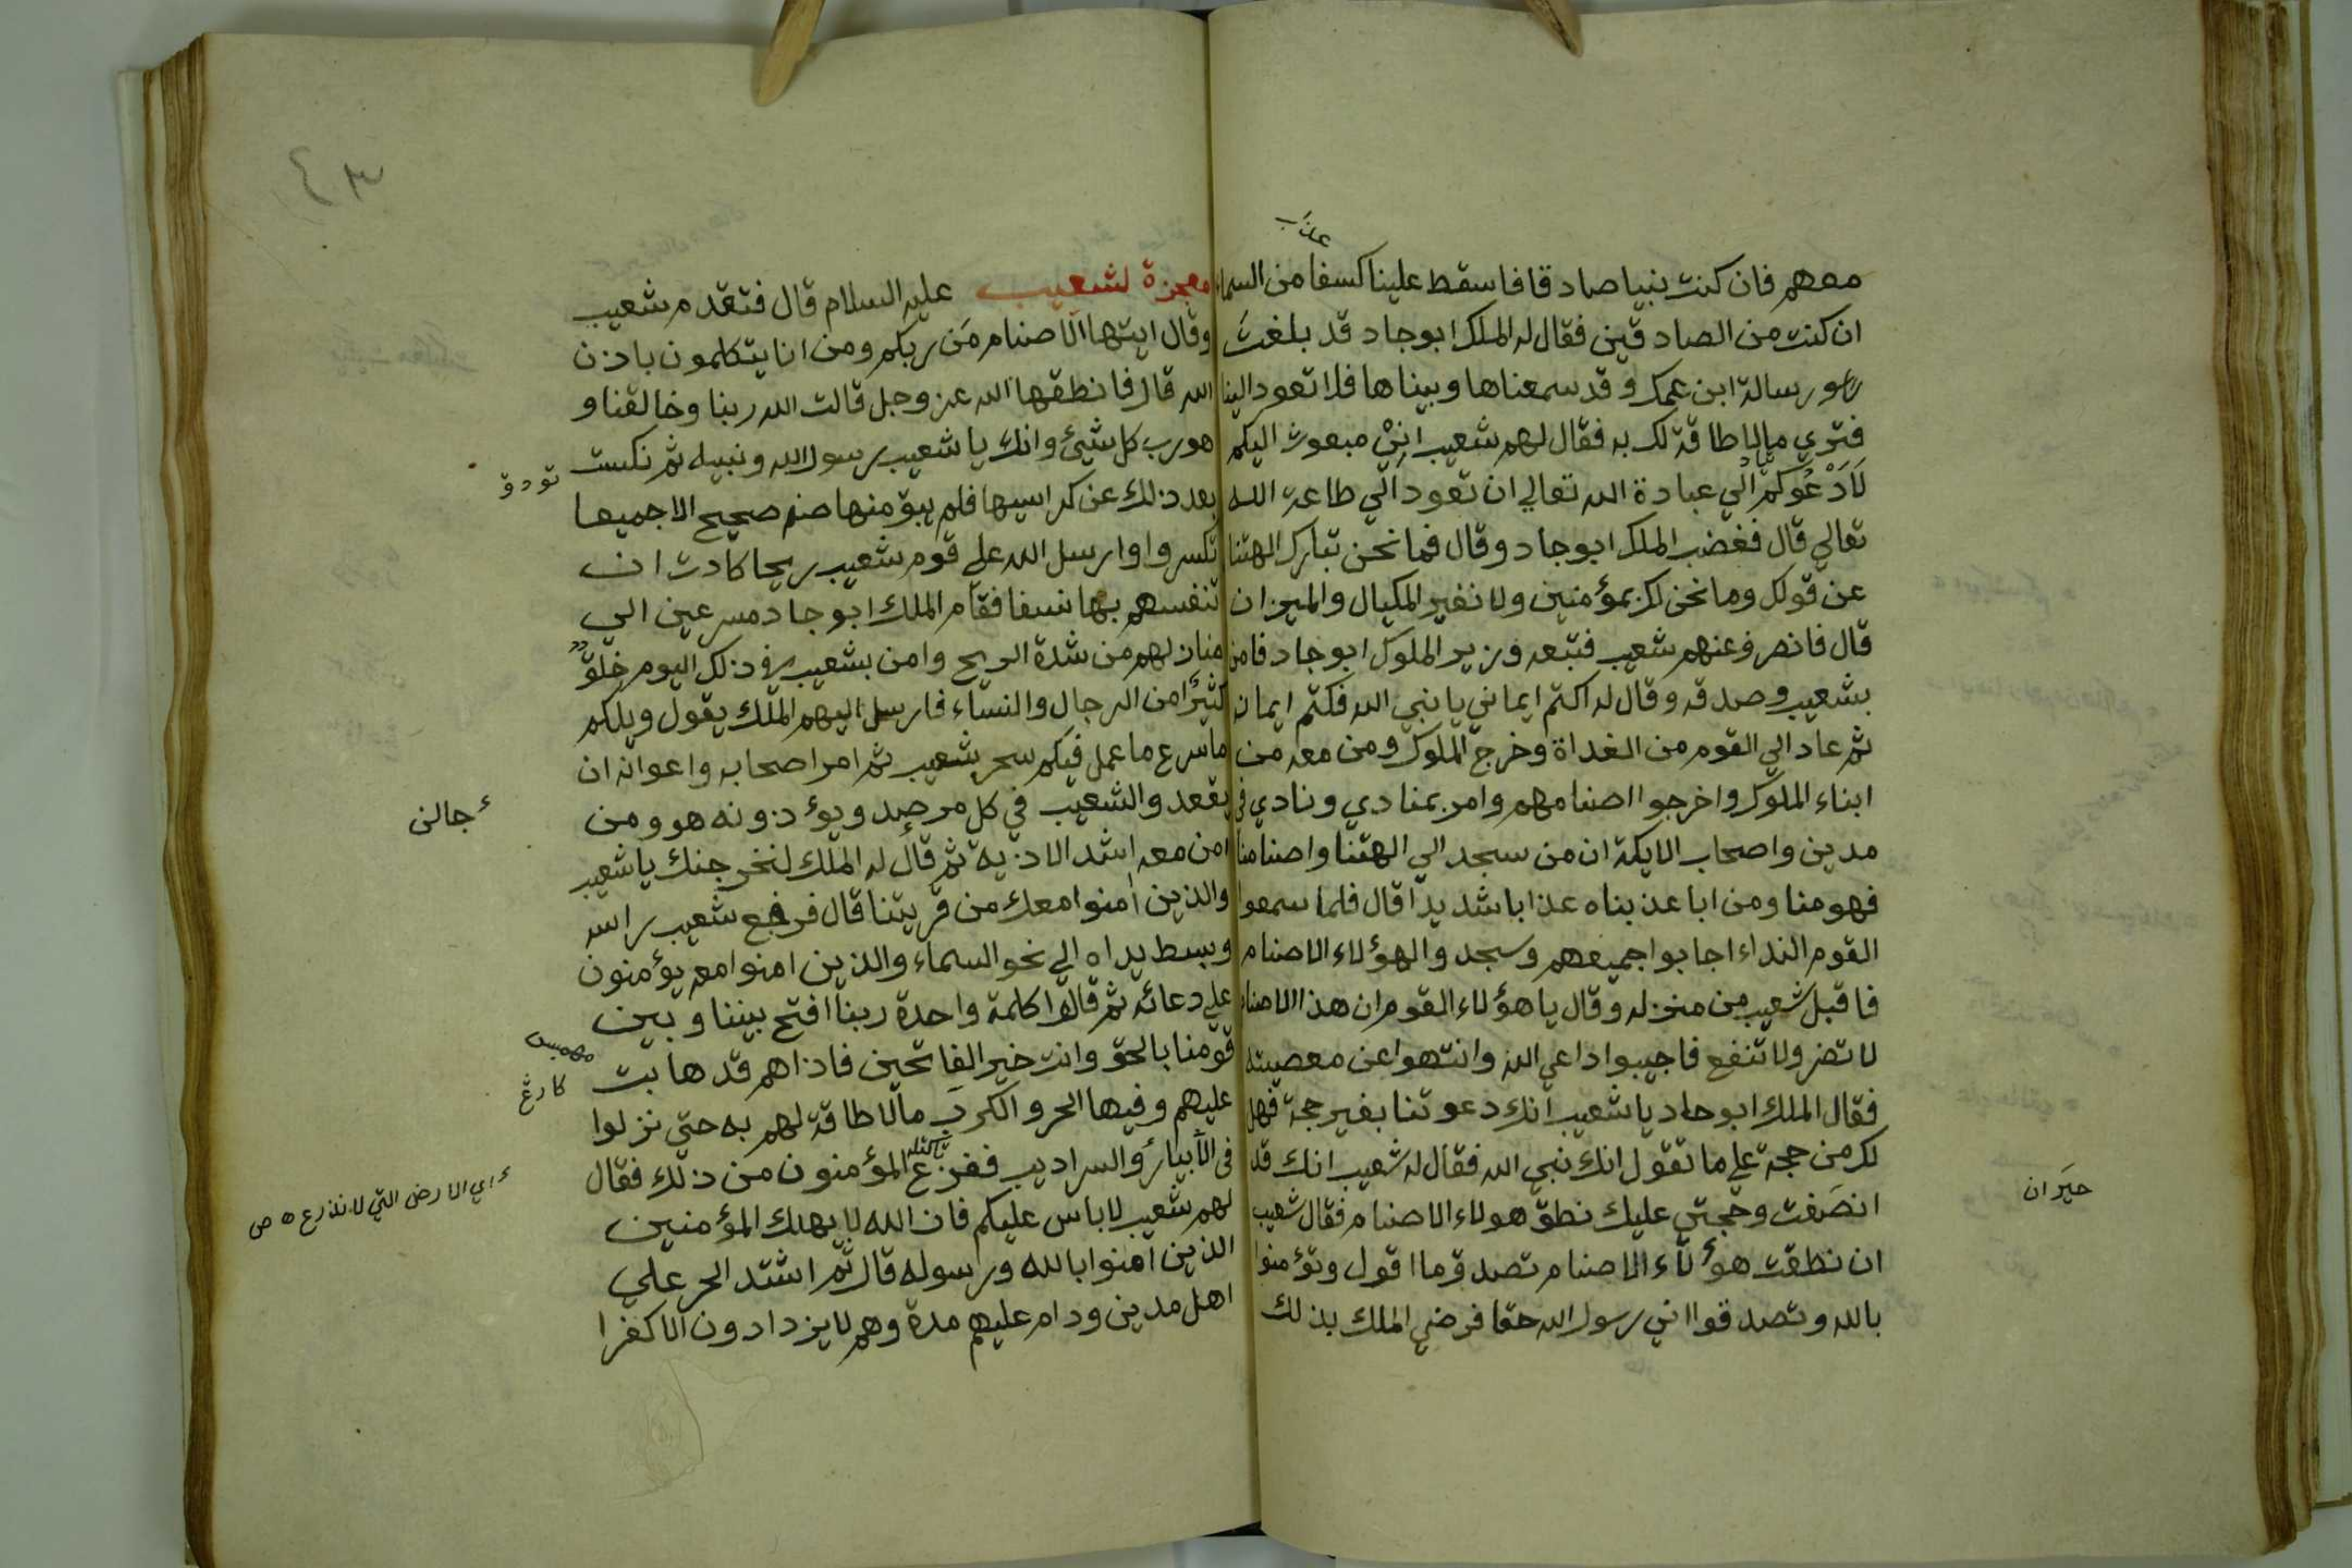 عذاب
معهم فان كنت نبيا صادقا فاسقط علينا كسفا من السماء
ان كنت من الصادقين فقال له الملك ابو جاد قد بلغت
رسالة ابن عمك وقد سمعناها وبيناها فلا تعود الينا
فتري مالا طاقة لك به فقال لهم شعيب انِيْ مبعوث اليكم
لَاَدْعُوَكُمْ الي عبادة الله تعالي ان تعود الي طاعة الله
تعالي قال فغضب الملك ابو جاد وقال فما نحن بتارك الهتنا
عن قولك وما نحن لك بمؤمنين ولا نغير المكيال والميزان
قال فانصرف عنهم شعيب فتبعه وزير الملوك ابو جاد فامن
بشعيب وصدقه وقال له اكتم ايماني يا نبي الله فكتم ايمانه
ثم عاد الي القوم من الغداة وخرج الملوك ومن معه من
ابناء الملوك واخرجوا اصنامهم وامر بمنادي ونادي في
مدين واصحاب الايكة ان من سجد الي الهتنا واصنامنا
فهو منا ومن ابا عذبناه عذابا شديدا قال فلما سمعوا
القوم النداء اجابوا جميعهم وسجدوا لهؤلاء الاصنام
فاقبل شعيب من منزله وقال يا هؤلاء القوم ان هذا الاصنام
لا تضر ولا تنفع فاجيبوا داعي الله وانتهوا عن معصيته
فقال الملك ابو جاد يا شعيب انك دعوتنا بغير حجة فهل
لك من حجة علي ما تقول انك نبي الله فقال له شعيب انك قد
انصَفت وحجتي عليك نطق هولاء الاصنام فقال شعيب
ان نطقت هؤلاء الاصنام تصدق ما اقول وتؤمنوا
بالله وتصدقوا اني رسول الله حقا فرضي الملك بذلك
حيَران
٤٣
معجزة لشعيب عليه السلام قال فتقدم شعيب
وقال ايتها الاصنام مَن ربكم ومن انا يتكلمون باذن
الله قال فانطقها الله عز وجل قالت الله ربنا وخالقنا و
هو رب كل شيئ وانك يا شعيب رسول الله ونبيه ثم نكست
بعد ذلك عن كراسيها فلم يبق منها صنم صحيح الا جميعا
تكسروا وارسل الله علي قوم شعيب ريحا كادت ان
تنفسهم بها نسفا فقام الملك ابو جاد مسرعين الي
منازلهم من شدة الريح وامن بشعيب في ذلك اليوم خلق
كثيرا من الرجال والنساء فارسل اليهم الملك يقول ويلكم
ما اسرع ما عمل فيكم سحر شعيب ثم امر اصحابه واعوانه ان
يقعدوالشعيب في كل مرصد ويؤذونه هو ومن
امن معه اشد الاذية ثم قال له الملك لنخرجنك يا شعيب
والذين امنوا معك من قريتنا قال فرفع شعيب راسه
وبسط يداه الي نحو السماء والذين امنوا معه يؤمنون
علي دعائه ثم قالوا كلمة واحدة ربنا افتح بيننا وبين
قومنا بالحق وانت خير الفاتحين فاذا هم قد هابت
عليهم وفيها الحر والكرب مالا طاقة لهم به حتى نزلوا
في الآبيار والسراديب ففزع المؤمنون من ذلك فقال
لهم شعيب لاباس عليكم فان الله لا يهلك المؤمنين
الذين امنوا بالله ورسوله قال ثم اشتد الحر علي
اهل مدين ودام عليهم مدة وهم لا يزدادون الا كفرا
جالن
اي الارض التي لا تذرع ه ص